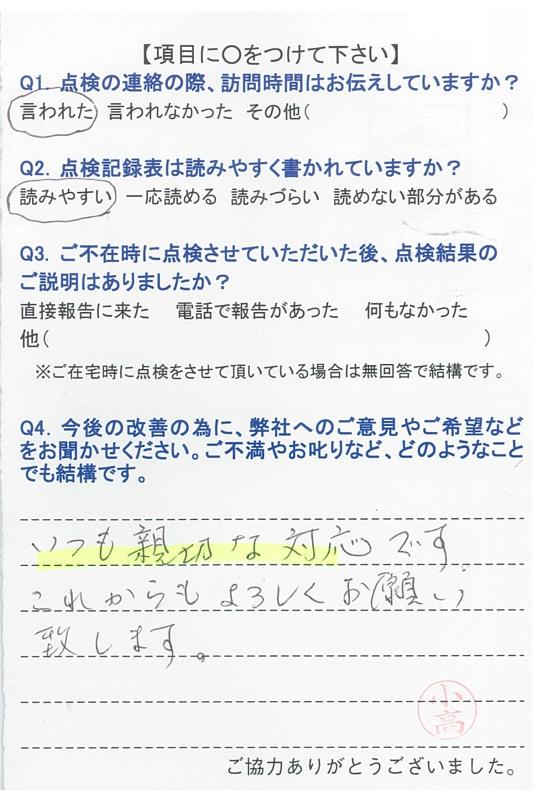 【項目に〇をつけて下さい】
Q1. 点検の連絡の際、訪問時間はお伝えしていますか？
言われた 言われなかった その他（ ）
Q2. 点検記録表は読みやすく書かれていますか？
読みやすい 一応読める 読みづらい 読めない部分がある
Q3. ご不在時に点検させていただいた後、点検結果の
ご説明はありましたか？
直接報告に来た 電話で報告があった 何もなかった
他（ ）
※ご在宅時に点検をさせて頂いている場合は無回答で結構です。
Q4. 今後の改善の為に、弊社へのご意見やご希望など
をお聞かせください。ご不満やお叱りなど、どのようなこと
でも結構です。
いつも親切な対応です。
これからもよろしくお願い
致します。
小高
ご協力ありがとうございました。